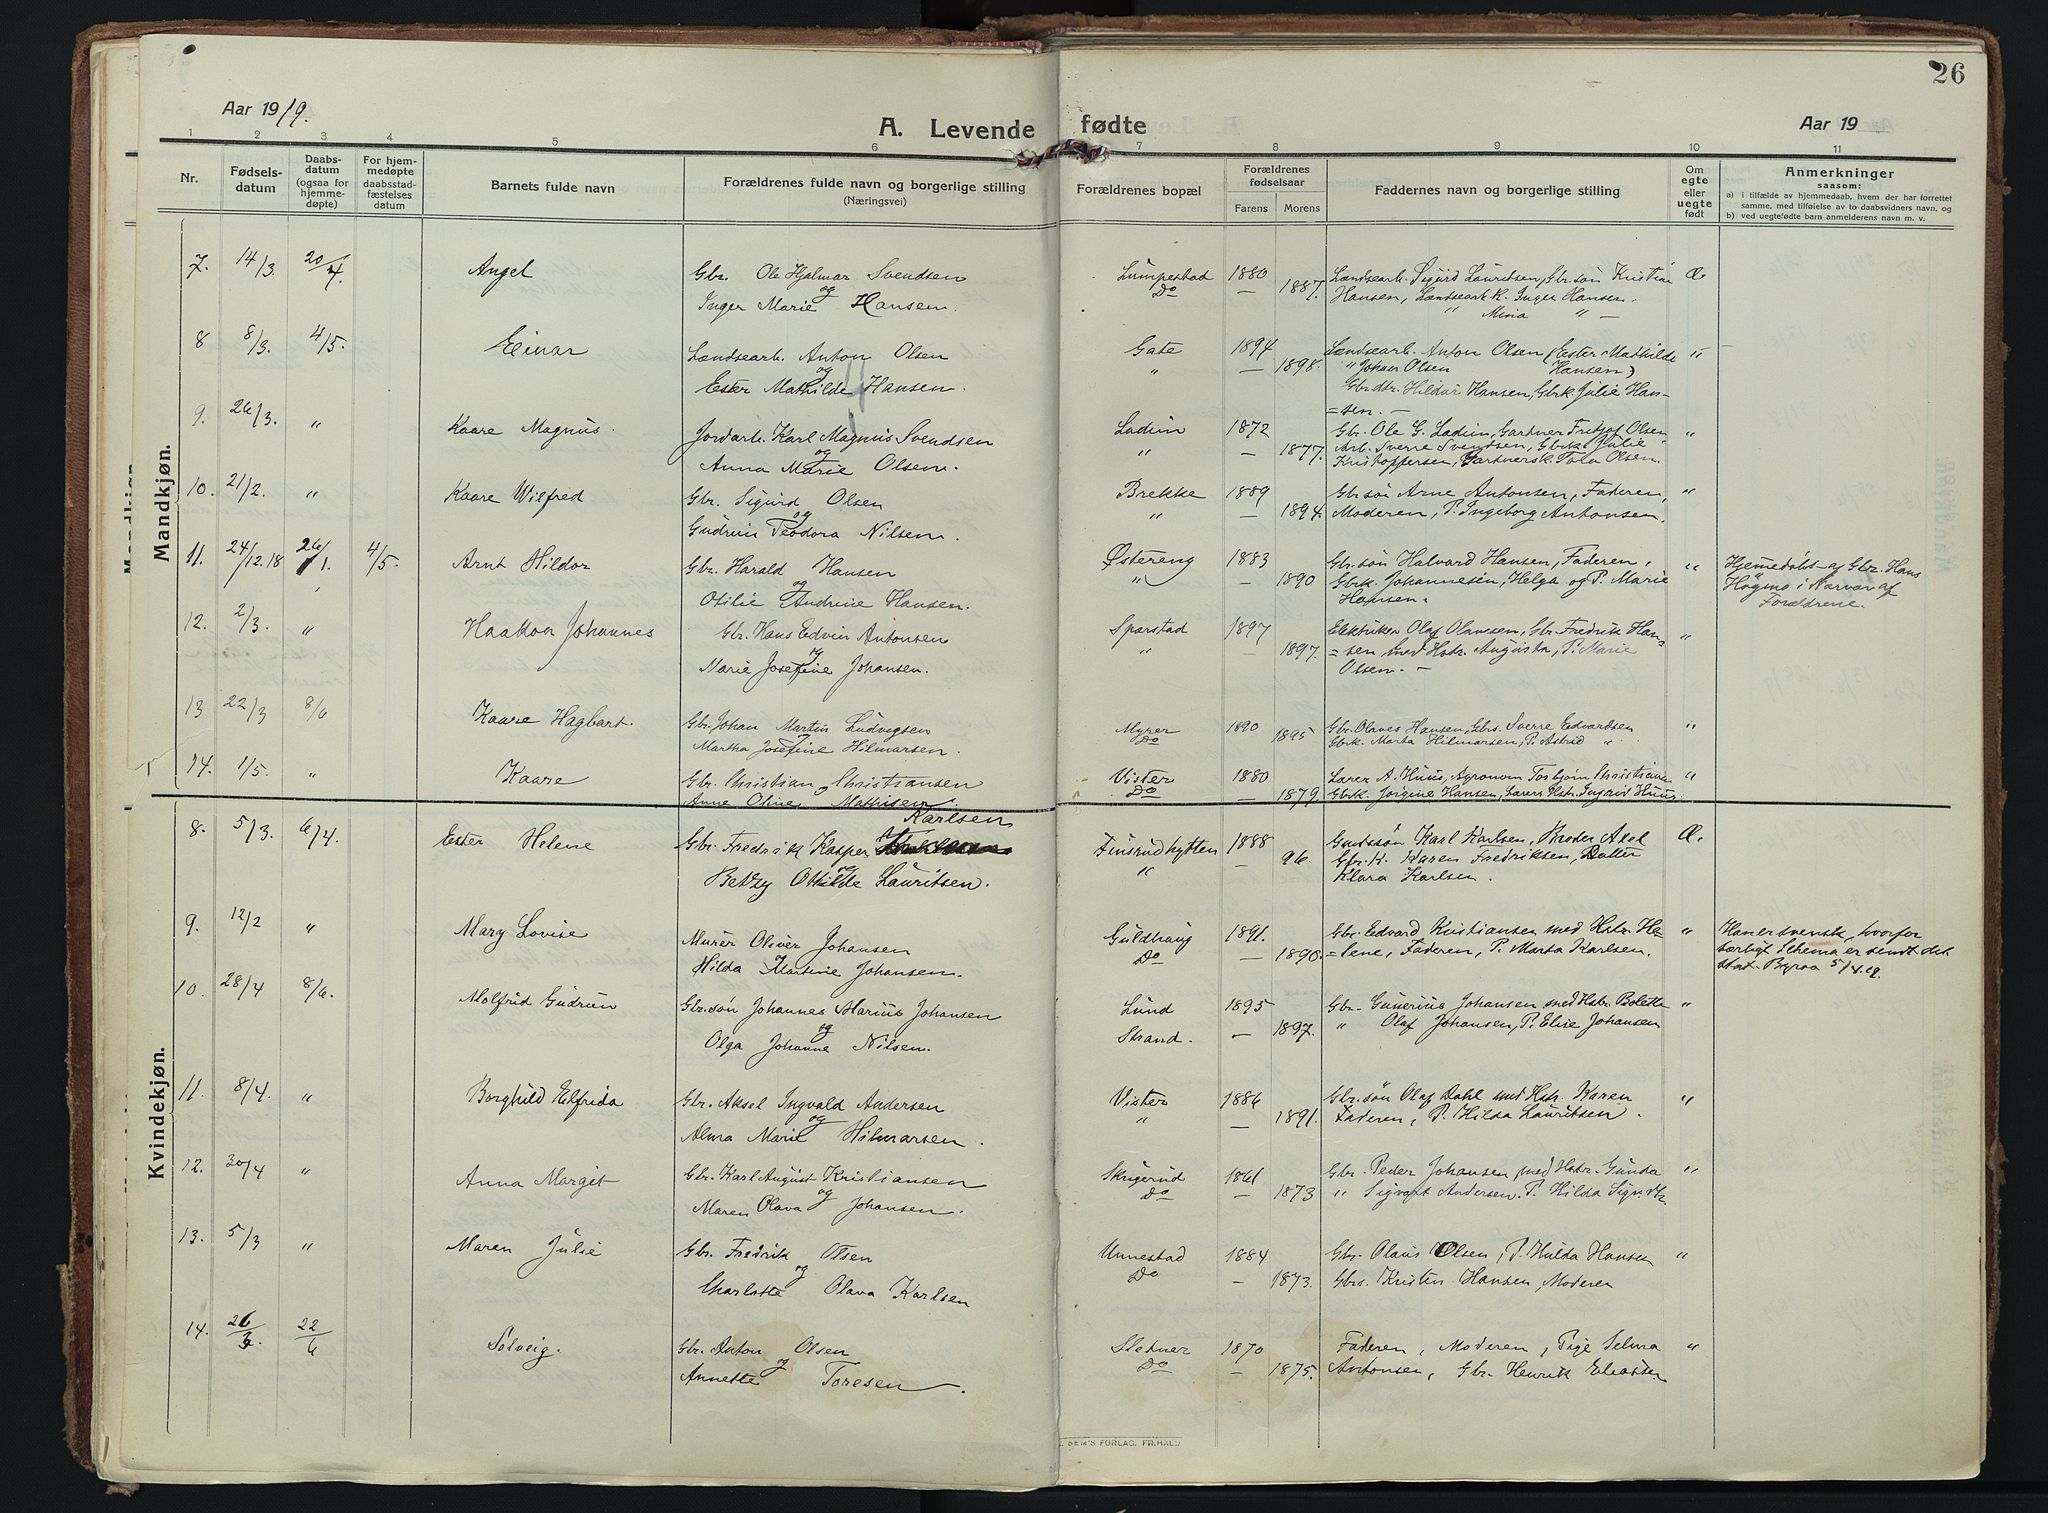 Aar 1919.
A. Levende fødte
Aar 19
26
1 2 3 4 5 6 7 8 9 10 11
Nr.
Fødsels-
datum
Daabs-
datum
(ogsaa for
hjemme-
døpte)
For hjem-
medøpte
daabsstad-
fæstelses
datum
Barnets fulde navn
Forældrenes fulde navn og borgerlige stilling
(Næringsvei)
Forældrenes bopæl
Forældrenes
fødselsaar
Farens Morens
Faddernes navn og borgerlige stilling
Om
egte
eller
uegte
født
Anmerkninger
saasom:
a) i tilfælde av hjemmedaab, hvem der har forrettet
samme, med tilføielse av to daabsvidners navn, og
b) ved uegtefødte barn anmelderens navn m. v.
Mandkjøn.
7. 14/3. 20/4. Angel Gbr. Ole Hjalmar Svendsen Lumpestad 1880 Lændsearb. Sigurd Lauritsen, Gbr.søn Kristian Æ.
og
Inger Marie Hansen. Do — 1887. Hansen, Lændsearb.k. Inga Hansen.
" Mina " —
8 8/3. 4/5. Einar Lændsearb. Anton Olsen Gate 1894 Lændsearb. Anton Olsen (Ester Mathilde "
og
Ester Mathilde Hansen. " — 1898. " Johan Olsen Hansen)
Gbrdtr. Hildur Hansen, Gbrk. Julie Han-
=sen. —
9. 26/3. " Kaare Magnus. Jordarb. Karl Magnus Svendsen Ladim 1872 Gbr. Ole G. Ladim, Gartner Fritjof Olsen "
og
Anna Marie Olsen. " — 1877. Arb. Sverre Svendsen, Gbrk. Julie
Kristoffersen, Gartnersk. Tola Olsen.
10. 21/2. " Kaare Wilfred Gbr. Sigurd Olsen Brekke 1889 Gbr.søn Arne Antonsen, Faderen, "
og
Gudrun Teodora Nilsen. " — 1894. Moderen, P. Ingeborg Antonsen.
11. 24/12.18 26/1. 4/5. Arnt Hildor Gbr. Harald Hansen Østereng 1883 Gbr.søn Halvard Hansen, Faderen, " Hjemedøbt af Gbr. Hans
og
Otilie Andrine Hansen. " — 1890 Gbrk. Johannesen, Helga og P. Marie Høgmo i Narvar af
Hansen. Forældrene.
12. 2/3. " Haakon Johannes Gbr. Hans Edvin Antonsen Sparstad 1897 Elektriker Olaf Olavesen, Gbr. Fredrik Han= "
og
Marie Josefine Johansen. " — 1897. =sen med Hstr. Augusta, P. Marie
Olsen. —
13 22/3 8/6 Kaare Hagbart. Gbr. Johan Martin Ludvigsen Myrer 1890 Gbr. Olaves Hansen, Gbrs. Sverre Edvardsen "
Martha Josefine Hilmarsen. Do 1895 Gbrk. Marta Hilmarsen, P. Astrid "
14. 1/5. " Kaare Gbr. Christian Christiansen Vister 1880 Lærer A. Huus, Agronom Torbjørn Christians. "
Anne Oline Mathisen. Do — 1879. Gbrk. Jørgine Hansen, Lærers Hstr. Ingrid Huus.
Kvindekjøn.
Karlsen
8. 5/3. 6/4. Ester Helene Gbr. Fredrik Kasper Finsrudhytten 1888 Gaardssøn Karl Karlsen, Broder Axel Æ.
og
Betzy Otilde Lauritsen. " 96. Gbr.k. Karen Fredriksen, Datter
Klara Karlsen.
9. 12/2 " Mary Lovise Murer Oliver Johansen Guldhaug 1891. Gbr. Edvard Kristiansen med Hstr. He- " Han er svensk, hvorfor
Hilda Martine Johansen. Do — 1890. =lene, Faderen, P. Marta Karlsen. særligt Schema er sendt det
stat. Byraa 5/4.19.
10. 28/4 8/6. Molfrid Gudrun Gbr.søn Johannes Marius Johansen Lund 1895 Gbr. Gunerius Johansen med Hstr. Bolette "
og
Olga Johanne Nilsen. Strand. — 1897. " Olaf Johansen, P. Elise Johansen
11. 8/4. " Borghild Elfrida Gbr. Aksel Ingvald Andersen Vister 1886 Gbr.søn Olaf Dahl med Hstr. Karen "
og
Alma Marie Hilmarsen. " — 1891. Faderen, P. Hilda Lauritsen.
12. 30/4 " Anna Margit Gbr. Karl August Kristiansen Skrigerud 1861 Gbr. Peder Johansen med Hstr. Gunda "
og
Maren Olava Johansen. Do — 1873 " Sigvart Andersen. P. Hilda
13. 5/3 " Maren Julie Gbr. Fredrik Olsen Unnestad 1884 Gbr. Olaus Olsen, P. Hulda Hansen "
og
Charlotte Olava Karlsen Do — 1873. Gbr. Kristen Hansen, Moderen
14. 26/3. 22/6 Solveig. Gbr. Anton Olsen Sletner 1870 Faderen, Moderen, Pige Selma "
og
Annette Toresen. Do — 1875. Antonsen, Gbr. Henrik
SEM'S FORLAG, FR.HALD